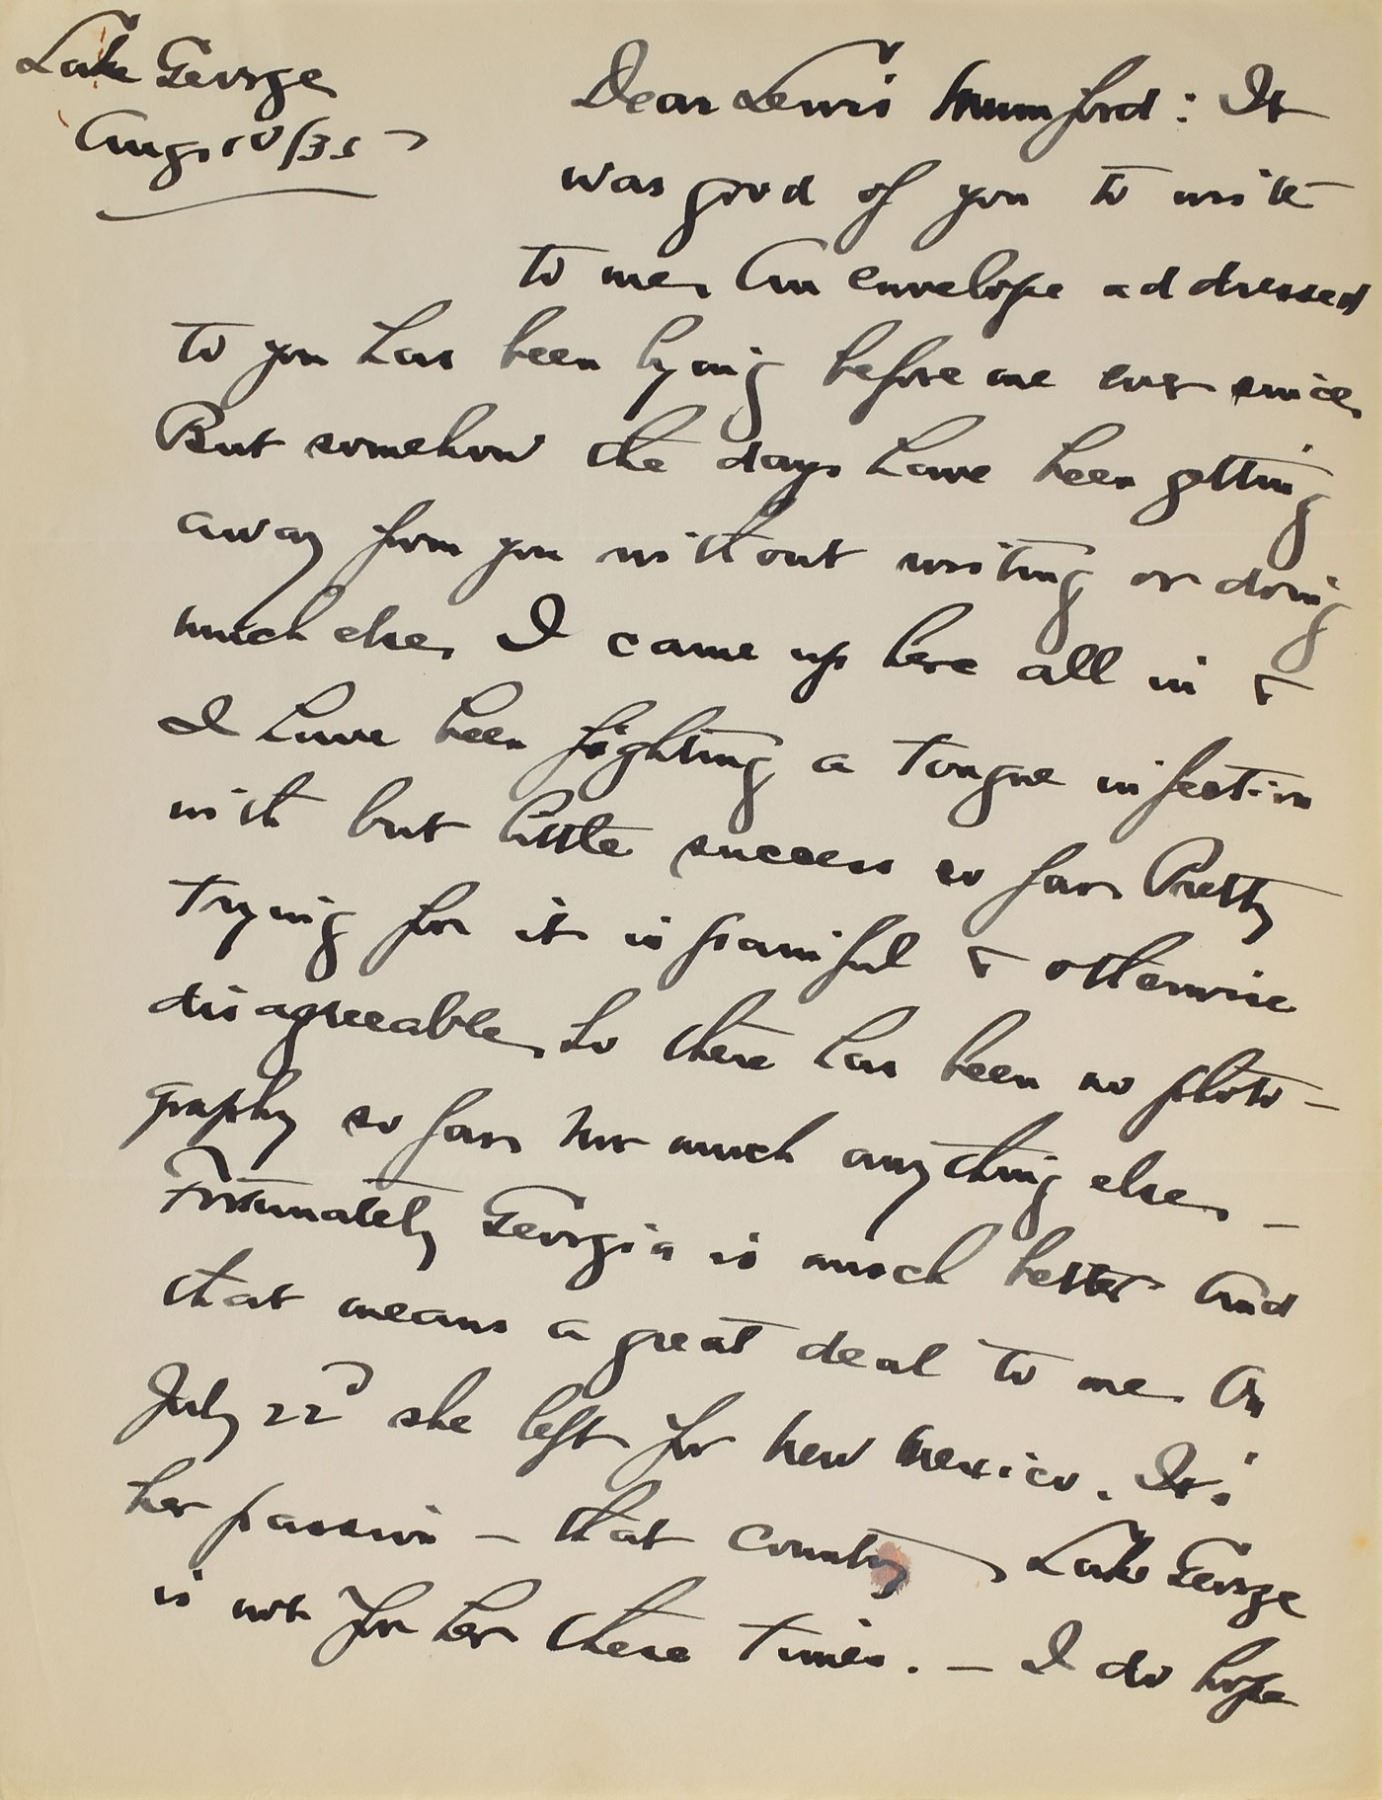 Lake George
Aug. 10/35
Dear Lewis Mumford: It
was good of you to write
to me. An envelope addressed
to you has been lying before me ever since.
But somehow the days have been getting
away from you without writing or doing
much else. I came up here all in &
I have been fighting a tongue infection
with but little success so far. Pretty
trying for it is painful & otherwise
disagreeable. So there has been no photo-
graphy so far. Nor much anything else. —
Fortunately Georgia is much better and
that means a great deal to me. On
July 22d she left for New Mexico. It's
her passion — that country. Lake George
is not for her these times. — I do hope